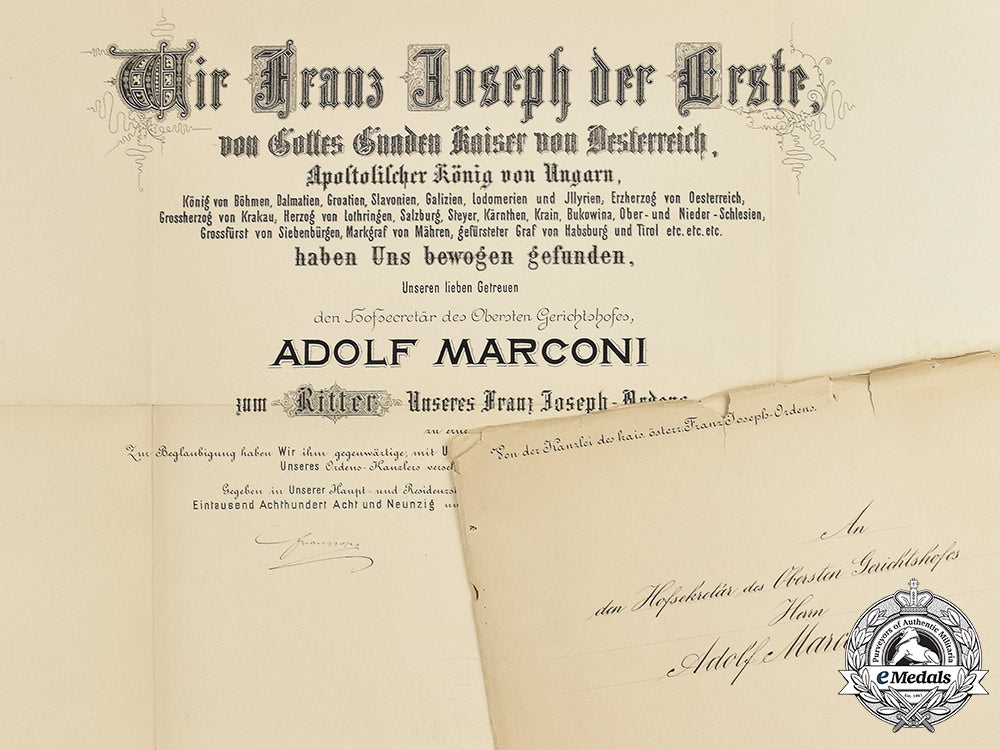 Wir Franz Joseph der Erste,
von Gottes Gnaden Kaiser von Oesterreich,
Apostolischer König von Ungarn,
König von Böhmen, Dalmatien, Croatien, Slavonien, Galizien, Lodomerien und Jllyrien, Erzherzog von Oesterreich,
Grossherzog von Krakau, Herzog von Lothringen, Salzburg, Steyer, Kärnthen, Krain, Bukowina, Ober- und Nieder-Schlesien,
Grossfürst von Siebenbürgen, Markgraf von Mähren, gefürsteter Graf von Habsburg und Tirol etc. etc. etc.
haben Uns bewogen gefunden,
Unseren lieben Getreuen
den Hofsecretär des Obersten Gerichtshofes,
ADOLF MARCONI
zum Ritter Unseres Franz Joseph-Ordens
zu erne
Zur Beglaubigung haben Wir ihm gegenwärtige, mit U
Unseres Ordens-Kanzlers verseh
Gegeben in Unserer Haupt- und Residenzst
Eintausend Achthundert Acht und Neunzig
Von der Kanzlei des kais. österr. Franz Joseph-Ordens.
An
den Hofsekretär des Obersten Gerichtshofes
Herrn
Adolf Marco
Purveyors of Authentic Militaria
eMedals
Est. 1967